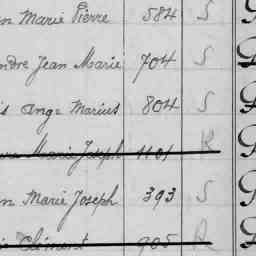 n Marie Pierre 584 S
ndre Jean Marie 704 S
s Ange Marius 804 S
Marie Joseph 1101 R
n Marie Joseph 393 S
Clément 905 R